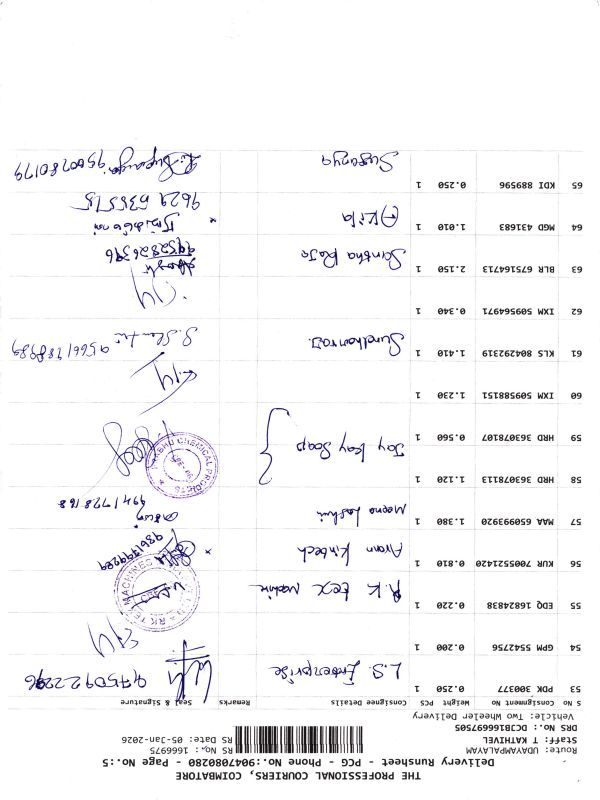 THE PROFESSIONAL COURIERS, COIMBATORE
Delivery Runsheet - PCG - Phone No.:9047080280 - Page No.:5
Route: UDAYAMPALAYAM
Staff: T KATHIVEL
DRS No: DCJB1661669750S
Vehicle: Two Wheeler Delivery
RS No.: 1666975
RS Date: 05-Jan-2026
S No Consignment No Weight PCS Consignee Details Remarks Seal & Signature
53 PDK 300377 0.250 1 L.S. Enterprise 9750922296
54 GPM 5542756 0.200 1
55 EDQ 16824838 0.220 1 R.K tex Machine
56 KUR 700521420 0.810 1 Arann Kintech 9361799289
57 MAA 650993920 1.380 1 Meena Lakshmi 9941728168
58 HRD 363078113 1.120 1 Jay Kay Soap
59 HRD 363078107 0.560 1
60 IXM 509588151 1.230 1
61 KLS 804292319 1.410 1 Sundharraj 9566178989
62 IXM 509564971 0.340 1
63 BLR 675164713 2.150 1 Santha Raja 9952826396
64 MGD 431683 1.010 1 Akila 9629535515
65 KDI 889596 0.250 1 Suganya 9500780179